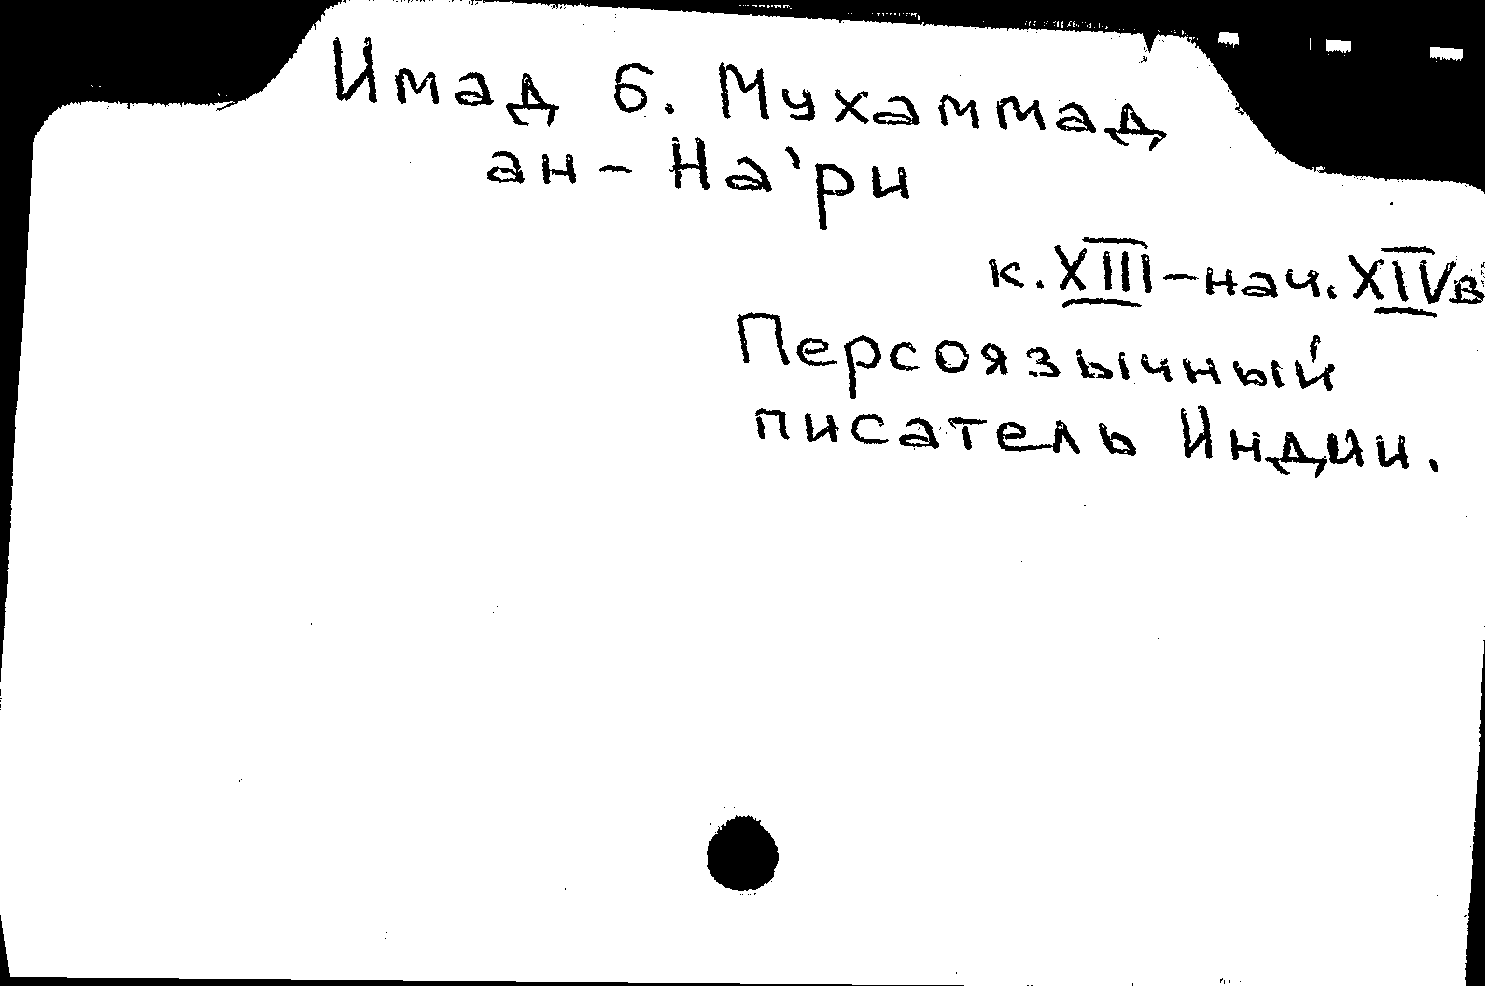 Имад б. Мухаммад
ан-На'ри
к. XIII-нач. XIVв
Персоязычный
писатель Индии.